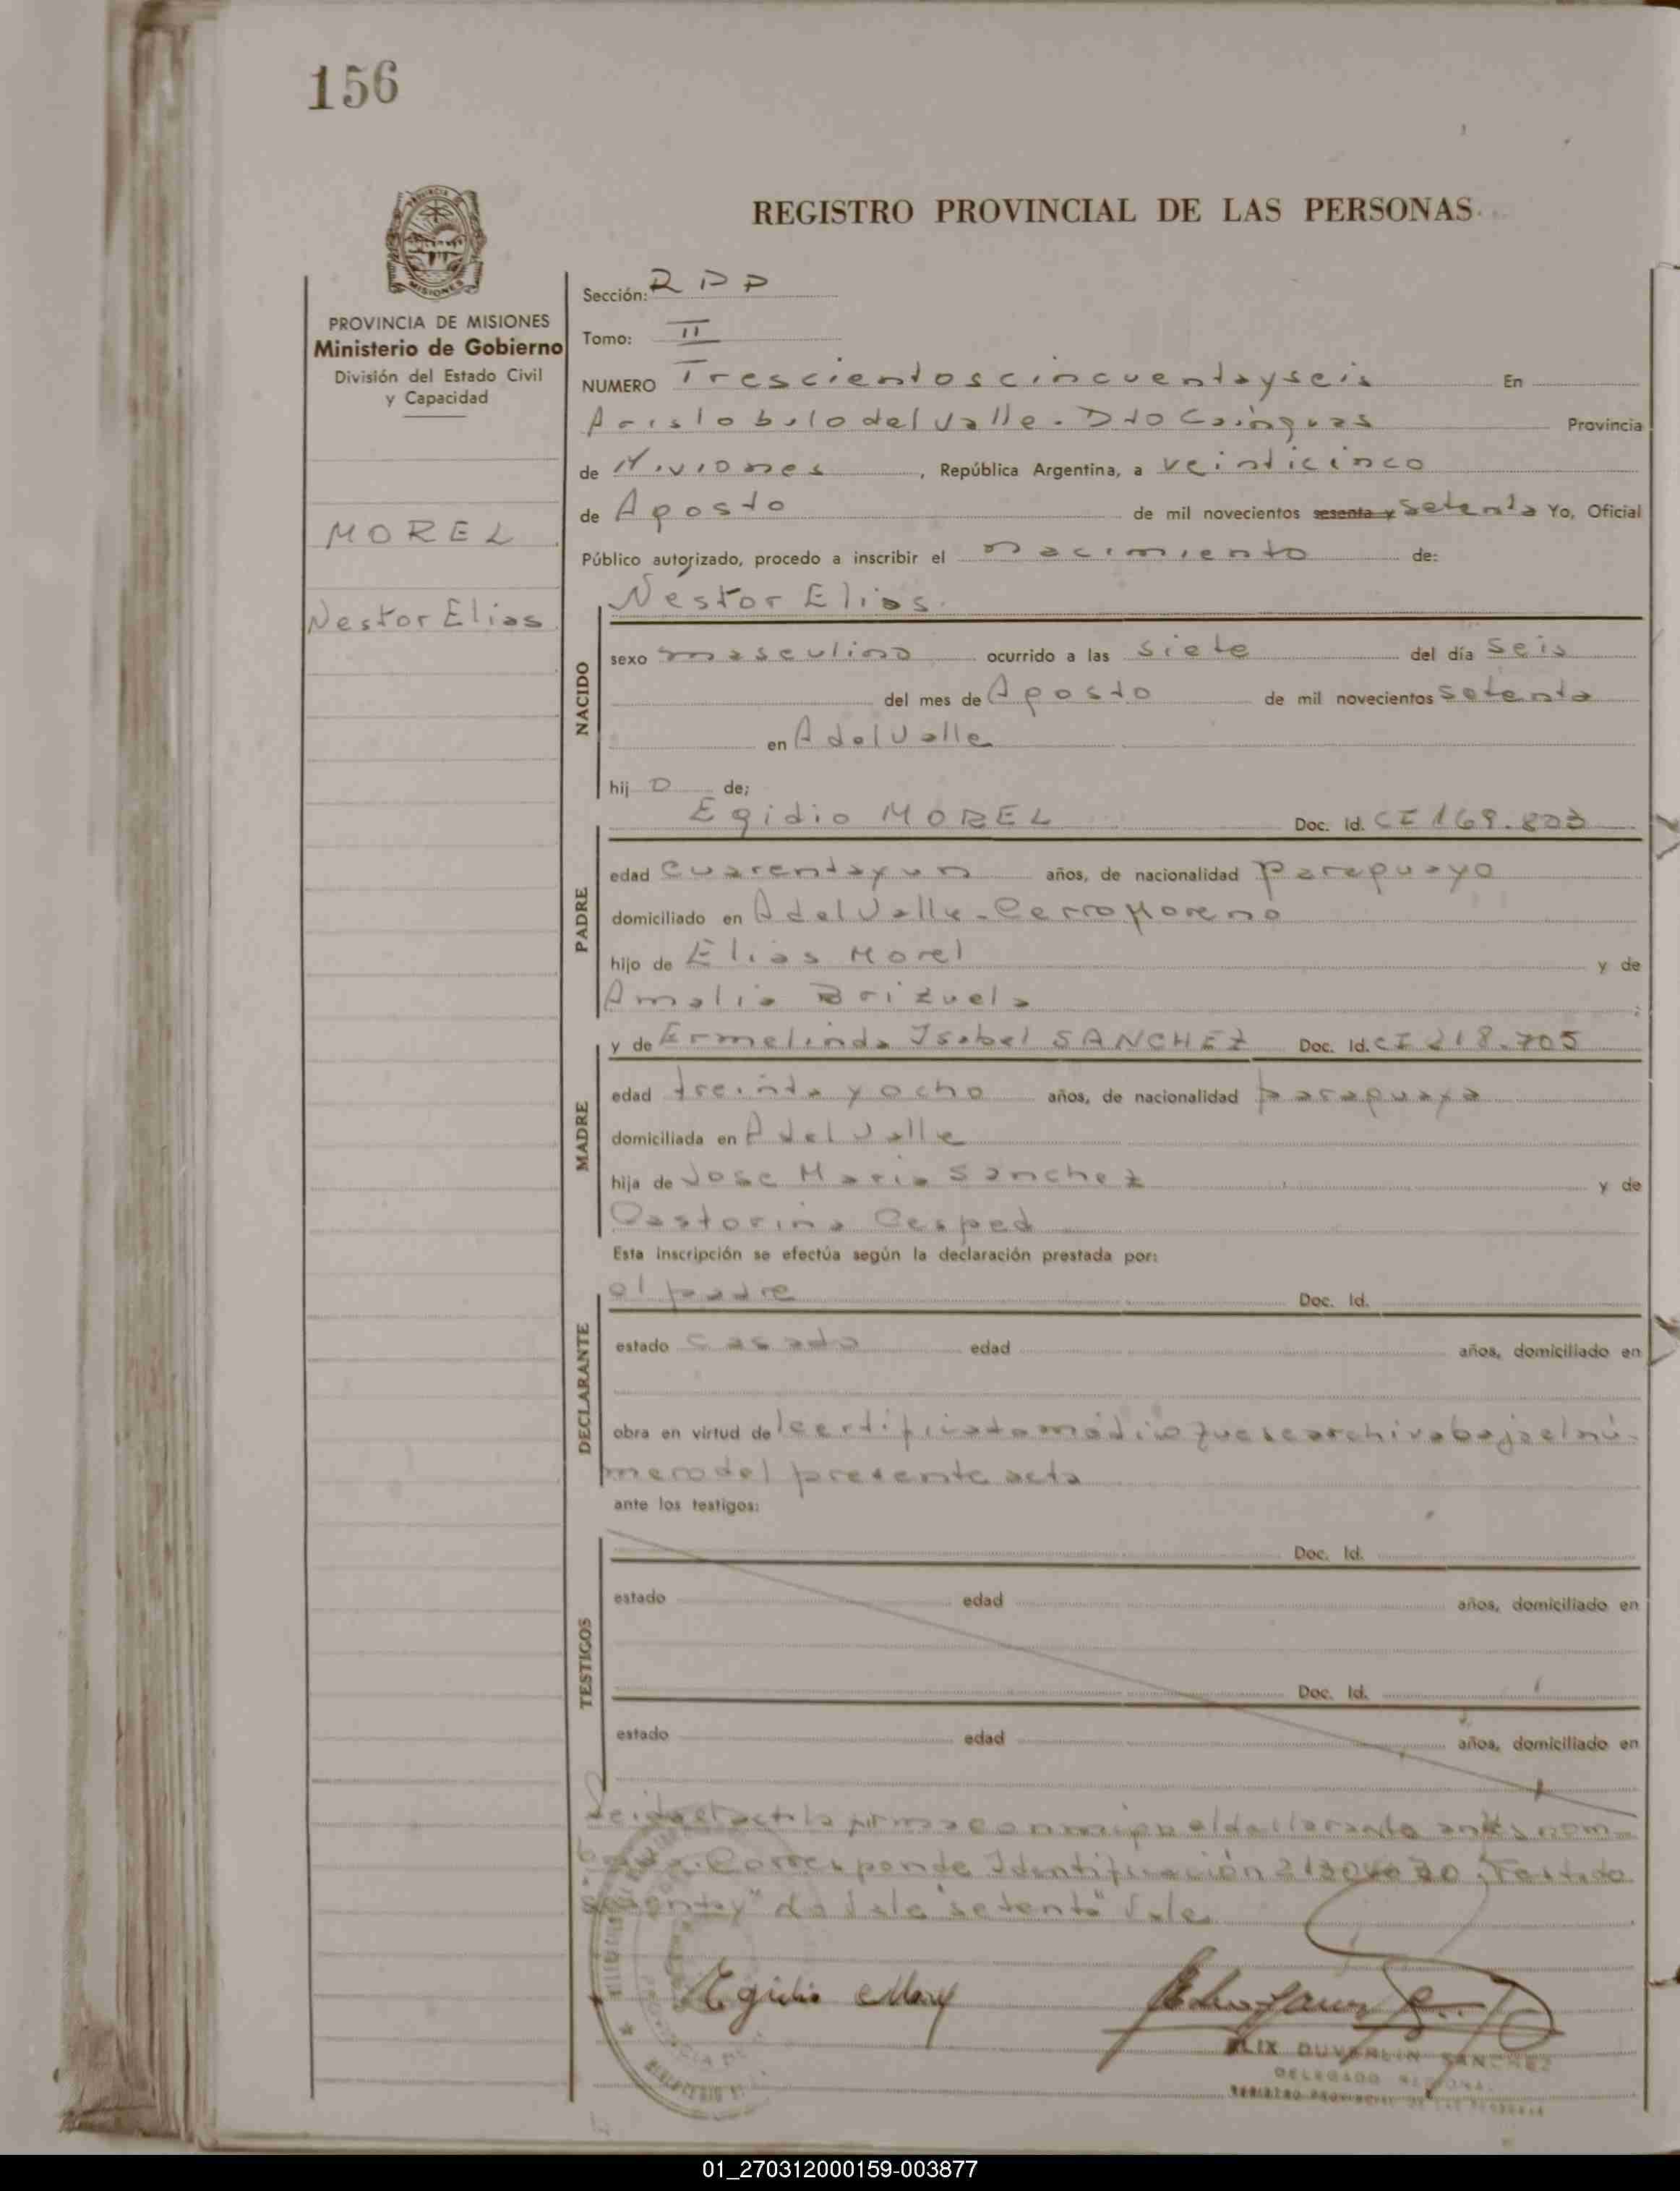 156
REGISTRO PROVINCIAL DE LAS PERSONAS
PROVINCIA DE MISIONES
Ministerio de Gobierno
División del Estado Civil
y Capacidad
MOREL
Nestor Elias
Sección: RPP
Tomo: II
NUMERO Trescientos cincuenta y seis En
Aristobulo del Valle - Dto Cainguas Provincia
de Misiones, República Argentina, a veinticinco
de Agosto de mil novecientos sesenta y setenta Yo, Oficial
Público autorizado, procedo a inscribir el nacimiento de:
NACIDO
Nestor Elias.
sexo masculino ocurrido a las siete del día seis
del mes de Agosto de mil novecientos setenta
en A del Valle
hij o de;
PADRE
Egidio MOREL Doc. Id. CI 169.803
edad cuarenta y un años, de nacionalidad paraguayo
domiciliado en A del Valle - Cerro Moreno
hijo de Elias Morel y de
Amalia Brizuela ;
MADRE
y de Ermelinda Isabel SANCHEZ Doc. Id. CI 218.705
edad treinta y ocho años, de nacionalidad paraguaya
domiciliada en A del Valle
hija de Jose Maria Sanchez y de
Pastorina Cesped
Esta inscripción se efectúa según la declaración prestada por:
DECLARANTE
el padre Doc. Id.
estado casado edad años, domiciliado en
obra en virtud del certificado médico que se archiva bajo el nú-
mero del presente acta
ante los testigos:
TESTIGOS
Doc. Id.
estado edad años, domiciliado en
Doc. Id.
estado edad años, domiciliado en
Leida el acta la firma conmigo el declarante antes nom-
Corresponde Identificación Testado
"sesenta y" no vale "setenta" Vale
Egidio Morel
FELIX DUVERLIN SANCHEZ
DELEGADO
REGISTRO PROVINCIAL DE LAS PERSONAS
01_270312000159-003877